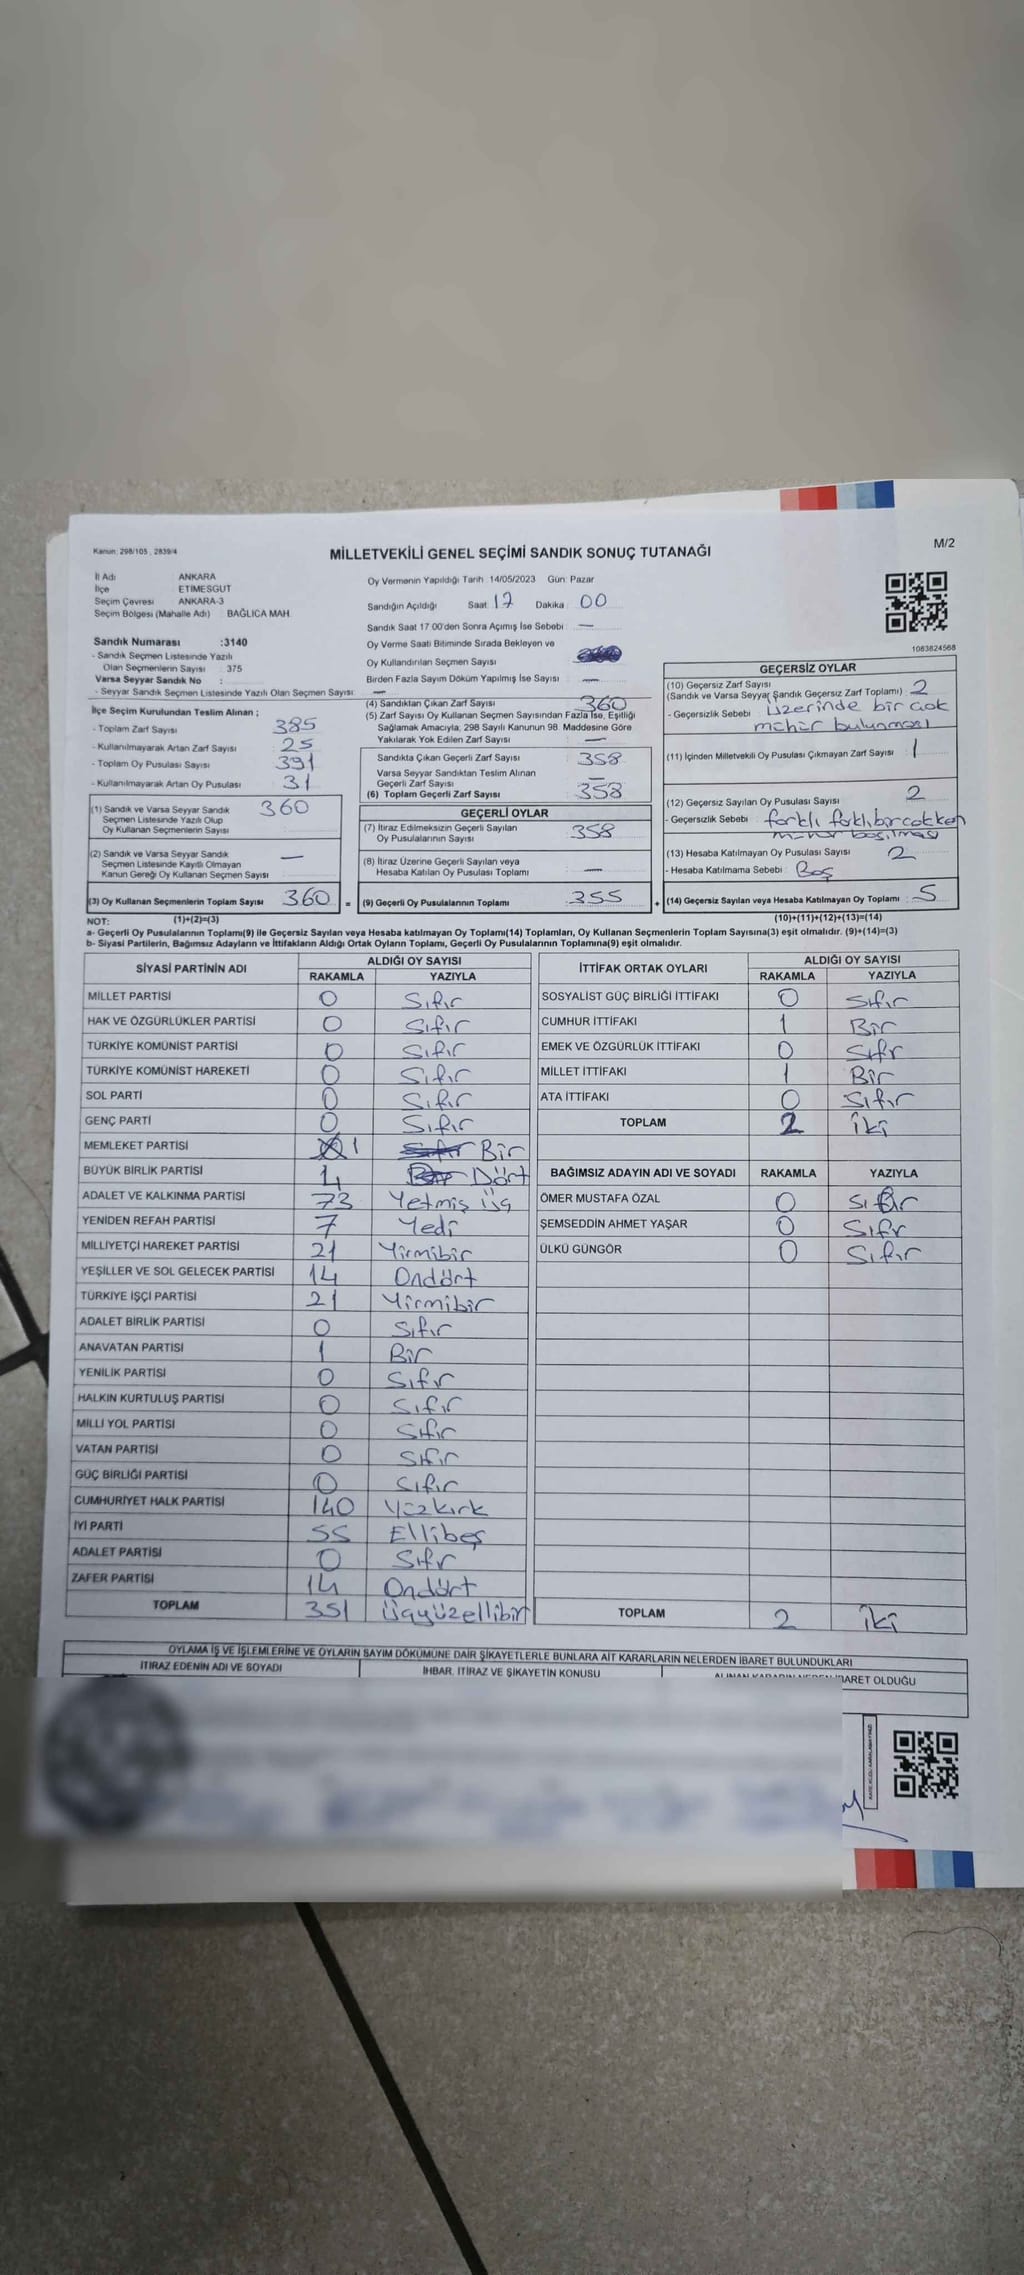 Kanun: 298/105 , 2839/4
MİLLETVEKİLİ GENEL SEÇİMİ SANDIK SONUÇ TUTANAĞI
M/2
İl Adı : ANKARA
İlçe : ETİMESGUT
Seçim Çevresi : ANKARA-3
Seçim Bölgesi (Mahalle Adı) : BAĞLICA MAH.
Sandık Numarası :3140
- Sandık Seçmen Listesinde Yazılı
Olan Seçmenlerin Sayısı : 375
Varsa Seyyar Sandık No :
- Seyyar Sandık Seçmen Listesinde Yazılı Olan Seçmen Sayısı: —
İlçe Seçim Kurulundan Teslim Alınan ;
- Toplam Zarf Sayısı 385
- Kullanılmayarak Artan Zarf Sayısı 25
- Toplam Oy Pusulası Sayısı 391
- Kullanılmayarak Artan Oy Pusulası 31
(1) Sandık ve Varsa Seyyar Sandık 360
Seçmen Listesinde Yazılı Olup
Oy Kullanan Seçmenlerin Sayısı
(2) Sandık ve Varsa Seyyar Sandık —
Seçmen Listesinde Kayıtlı Olmayan
Kanun Gereği Oy Kullanan Seçmen Sayısı
(3) Oy Kullanan Seçmenlerin Toplam Sayısı 360 =
Oy Vermenin Yapıldığı Tarih : 14/05/2023 Gün: Pazar
Sandığın Açıldığı Saat 17 Dakika : 00
Sandık Saat 17.00'den Sonra Açımış İse Sebebi : —
Oy Verme Saati Bitiminde Sırada Bekleyen ve
Oy Kullandırılan Seçmen Sayısı :
Birden Fazla Sayım Döküm Yapılmış İse Sayısı : —
(4) Sandıktan Çıkan Zarf Sayısı 360
(5) Zarf Sayısı Oy Kullanan Seçmen Sayısından Fazla İse, Eşitliği
Sağlamak Amacıyla, 298 Sayılı Kanunun 98. Maddesine Göre
Yakılarak Yok Edilen Zarf Sayısı : —
Sandıkta Çıkan Geçerli Zarf Sayısı : 358
Varsa Seyyar Sandıktan Teslim Alınan
Geçerli Zarf Sayısı —
(6) Toplam Geçerli Zarf Sayısı : 358
GEÇERLİ OYLAR
(7) İtiraz Edilmeksizin Geçerli Sayılan
Oy Pusulalarının Sayısı : 358
(8) İtiraz Üzerine Geçerli Sayılan veya
Hesaba Katılan Oy Pusulası Toplamı : —
(9) Geçerli Oy Pusulalarının Toplamı : 355 +
1083824568
GEÇERSİZ OYLAR
(10) Geçersiz Zarf Sayısı
(Sandık ve Varsa Seyyar Sandık Geçersiz Zarf Toplamı) : 2
- Geçersizlik Sebebi : üzerinde bir çok
mühür bulunması
(11) İçinden Milletvekili Oy Pusulası Çıkmayan Zarf Sayısı : 1
(12) Geçersiz Sayılan Oy Pusulası Sayısı : 2
- Geçersizlik Sebebi : farklı farklı bircokken
mühür basılması
(13) Hesaba Katılmayan Oy Pusulası Sayısı : 2
- Hesaba Katılmama Sebebi : Boş
(14) Geçersiz Sayılan veya Hesaba Katılmayan Oy Toplamı : 5
NOT: (1)+(2)=(3) (10)+(11)+(12)+(13)=(14)
a- Geçerli Oy Pusulalarının Toplamı(9) ile Geçersiz Sayılan veya Hesaba katılmayan Oy Toplamı(14) Toplamları, Oy Kullanan Seçmenlerin Toplam Sayısına(3) eşit olmalıdır. (9)+(14)=(3)
b- Siyasi Partilerin, Bağımsız Adayların ve İttifakların Aldığı Ortak Oyların Toplamı, Geçerli Oy Pusulalarının Toplamına(9) eşit olmalıdır.
SİYASİ PARTİNİN ADI ALDIĞI OY SAYISI
RAKAMLA YAZIYLA
MİLLET PARTİSİ 0 Sıfır
HAK VE ÖZGÜRLÜKLER PARTİSİ 0 Sıfır
TÜRKİYE KOMÜNİST PARTİSİ 0 Sıfır
TÜRKİYE KOMÜNİST HAREKETİ 0 Sıfır
SOL PARTİ 0 Sıfır
GENÇ PARTİ 0 Sıfır
MEMLEKET PARTİSİ 1 Bir
BÜYÜK BİRLİK PARTİSİ 4 Dört
ADALET VE KALKINMA PARTİSİ 73 Yetmiş üç
YENİDEN REFAH PARTİSİ 7 Yedi
MİLLİYETÇİ HAREKET PARTİSİ 21 Yirmibir
YEŞİLLER VE SOL GELECEK PARTİSİ 14 Ondört
TÜRKİYE İŞÇİ PARTİSİ 21 Yirmibir
ADALET BİRLİK PARTİSİ 0 Sıfır
ANAVATAN PARTİSİ 1 Bir
YENİLİK PARTİSİ 0 Sıfır
HALKIN KURTULUŞ PARTİSİ 0 Sıfır
MİLLİ YOL PARTİSİ 0 Sıfır
VATAN PARTİSİ 0 Sıfır
GÜÇ BİRLİĞİ PARTİSİ 0 Sıfır
CUMHURİYET HALK PARTİSİ 140 Yüzkırk
İYİ PARTİ 55 Ellibeş
ADALET PARTİSİ 0 Sıfır
ZAFER PARTİSİ 14 Ondört
TOPLAM 351 üçyüzellibir
İTTİFAK ORTAK OYLARI ALDIĞI OY SAYISI
RAKAMLA YAZIYLA
SOSYALİST GÜÇ BİRLİĞİ İTTİFAKI 0 Sıfır
CUMHUR İTTİFAKI 1 Bir
EMEK VE ÖZGÜRLÜK İTTİFAKI 0 Sıfır
MİLLET İTTİFAKI 1 Bir
ATA İTTİFAKI 0 Sıfır
TOPLAM 2 iki
BAĞIMSIZ ADAYIN ADI VE SOYADI RAKAMLA YAZIYLA
ÖMER MUSTAFA ÖZAL 0 Sıfır
ŞEMSEDDİN AHMET YAŞAR 0 Sıfır
ÜLKÜ GÜNGÖR 0 Sıfır
TOPLAM 2 iki
OYLAMA İŞ VE İŞLEMLERİNE VE OYLARIN SAYIM DÖKÜMÜNE DAİR ŞİKAYETLERLE BUNLARA AİT KARARLARIN NELERDEN İBARET BULUNDUKLARI
İTİRAZ EDENİN ADI VE SOYADI İHBAR, İTİRAZ VE ŞİKAYETİN KONUSU ALINAN KARARIN NEDEN İBARET OLDUĞU